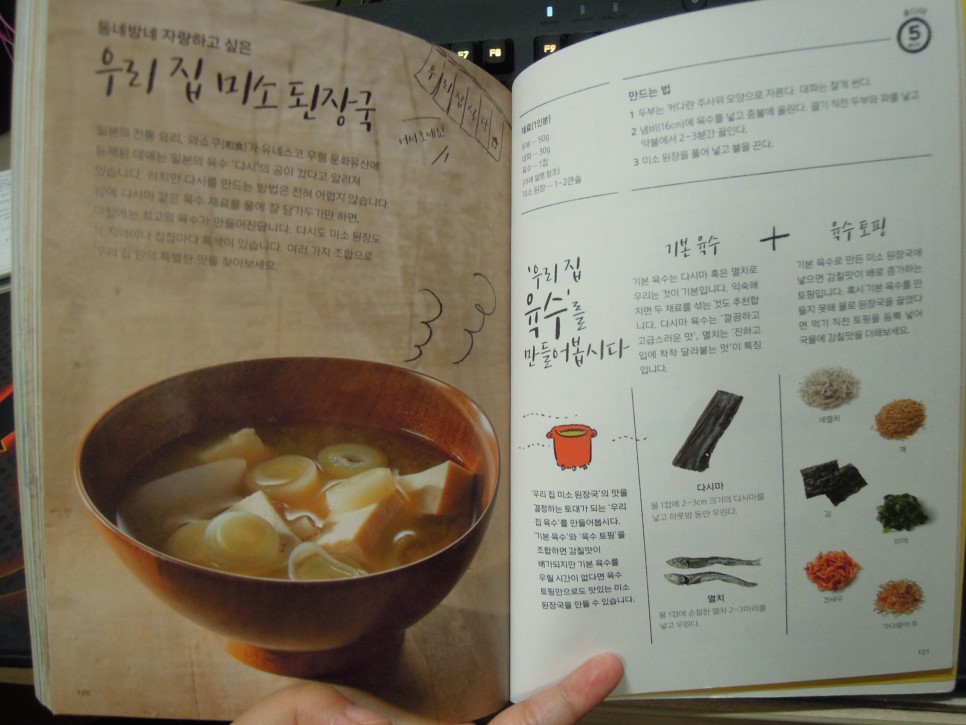 동네방네 자랑하고 싶은
우리 집 미소 된장국
우리집식당
어서오세요!
일본의 전통 요리, 와쇼쿠(和食)가 유네스코 무형 문화유산에
등재된 데에는 일본의 육수 '다시'의 공이 컸다고 알려져
있습니다. 하지만 다시를 만드는 방법은 전혀 어렵지 않습니다.
밤에 다시마 같은 육수 재료를 물에 잘 담가두기만 하면,
아침에는 최고의 육수가 만들어진답니다. 다시도 미소 된장도
각 지역이나 집집마다 특색이 있습니다. 여러 가지 조합으로
'우리 집'만의 특별한 맛을 찾아보세요.
120
5
재료(1인분)
두부 ··· 50g
대파 ··· 30g
육수 ··· 1컵
(아래 설명 참조)
미소 된장 ··· 1~2큰술
만드는 법
1 두부는 커다란 주사위 모양으로 자른다. 대파는 잘게 썬다.
2 냄비(16cm)에 육수를 넣고 중불에 올린다. 끓기 직전 두부와 파를 넣고
약불에서 2~3분간 끓인다.
3 미소 된장을 풀어 넣고 불을 끈다.
'우리 집
육수'를
만들어봅시다
'우리 집 미소 된장국'의 맛을
결정하는 토대가 되는 '우리
집 육수'를 만들어봅시다.
'기본 육수'와 '육수 토핑'을
조합하면 감칠맛이
배가되지만 기본 육수를
우릴 시간이 없다면 육수
토핑만으로도 맛있는 미소
된장국을 만들 수 있습니다.
기본 육수
기본 육수는 다시마 혹은 멸치로
우리는 것이 기본입니다. 익숙해
지면 두 재료를 섞는 것도 추천합
니다. 다시마 육수는 '깔끔하고
고급스러운 맛', 멸치는 '진하고
입에 착착 달라붙는 맛'이 특징
입니다.
다시마
물 1컵에 2~3cm 크기의 다시마를
넣고 하룻밤 동안 우린다.
멸치
물 1컵에 손질한 멸치 2~3마리를
넣고 우린다.
+
육수 토핑
기본 육수로 만든 미소 된장국에
넣으면 감칠맛이 배로 증가하는
토핑입니다. 혹시 기본 육수를 만
들지 못해 물로 된장국을 끓였다
면 먹기 직전 토핑을 듬뿍 넣어
국물에 감칠맛을 더해보세요.
세멸치
깨
김
미역
건새우
가다랑어 포
121
F7
F8
F9